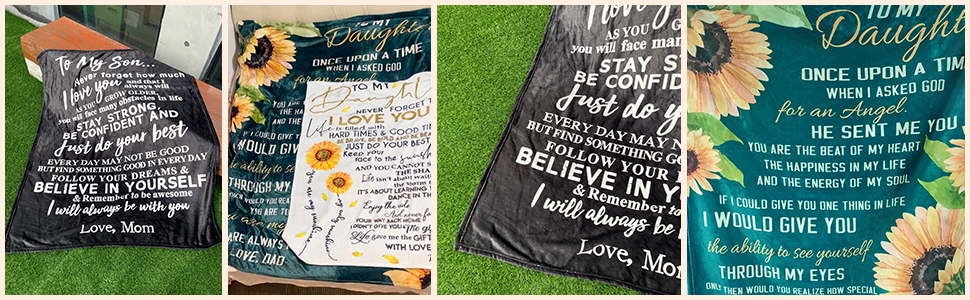 To My Son...
Never forget how much
I love you and that I
always will
AS YOU GROW OLDER,
you will face many obstacles in life
STAY STRONG,
BE CONFIDENT AND
Just do your best
EVERY DAY MAY NOT BE GOOD
BUT FIND SOMETHING GOOD IN EVERY DAY
FOLLOW YOUR DREAMS &
BELIEVE IN YOURSELF
& Remember to be awesome
I will always be with you
Love, Mom
TO MY
Daughter
ONCE UPON A TIME
WHEN I ASKED GOD
for an Angel
YOU ARE
AND THE
IF I COULD GIVE
I WOULD GIV
the ability to see
THROUGH MY
YOU ARE TO
ARE ALWAYS
LOVE, DAD
TO MY
Daught
NEVER FORGET T
I LOVE YOU
Life is filled with
HARD TIMES & GOOD TI
BE BRAVE, BE BOLD AND BE BEA
JUST DO YOUR BEST
Keep your
face to the sunsh
AND YOU CANNOT S
THE SHA
Life isn't about wait
the storm t
IT'S ABOUT LEARNING T
DANCE IN TH
Enjoy the ride
And never fo
YOUR WAY BACK HOME
I DIDN'T GIVE YOU The gi
Life gave me the GIFT
WITH LOVE
I love y
AS YOU G
you will face man
STAY S
BE CONFID
Just do y
EVERY DAY MAY
BUT FIND SOMETHING GO
FOLLOW YOUR
BELIEVE IN Y
& Remember to
I will always be
Love, Mom
TO MY
Daught
ONCE UPON A TIM
WHEN I ASKED GOD
for an Angel.
HE SENT ME YOU
YOU ARE THE BEAT OF MY HEART
THE HAPPINESS IN MY LIFE
AND THE ENERGY OF MY SOUL
IF I COULD GIVE YOU ONE THING IN LIFE
I WOULD GIVE YOU
the ability to see yourself
THROUGH MY EYES
ONLY THEN WOULD YOU REALIZE HOW SPECIAL